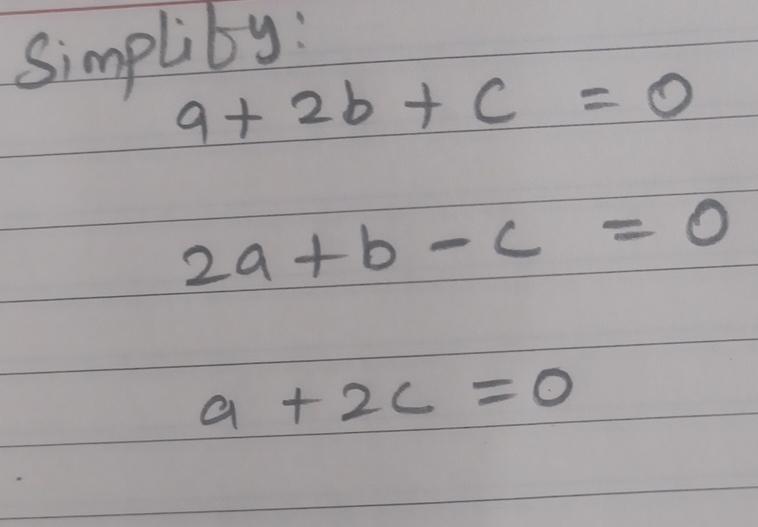 Simplify:
a + 2b + c = 0
2a + b - c = 0
a + 2c = 0